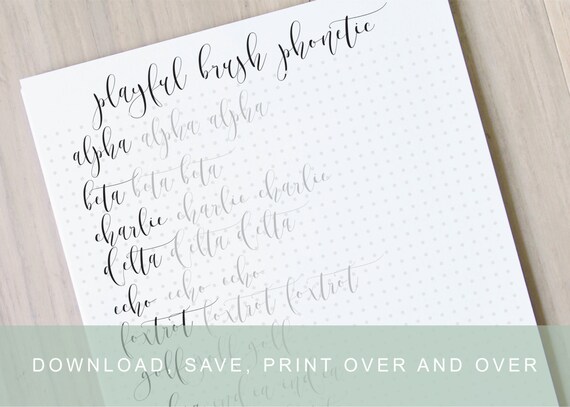 playful brush phonetic
alpha alpha alpha
beta beta beta
charlie charlie charlie
delta delta delta
echo echo echo
foxtrot foxtrot foxtrot
golf golf golf
DOWNLOAD, SAVE, PRINT OVER AND OVER